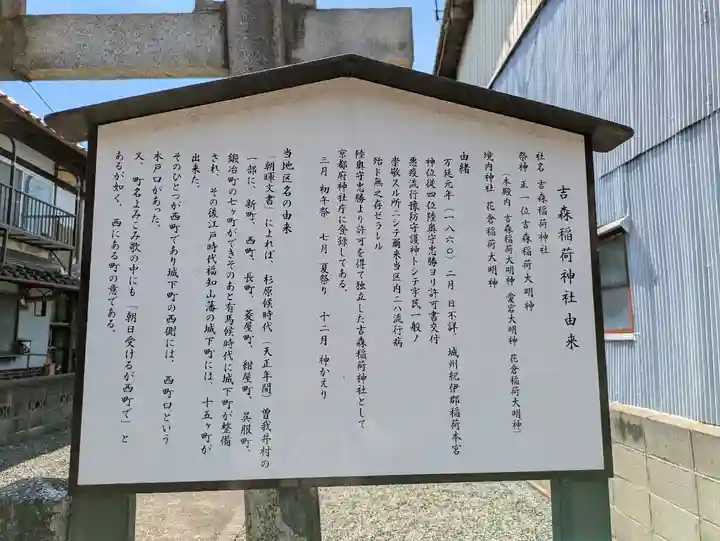 吉森稲荷神社由来
社名 吉森稲荷神社
祭神 正一位吉森稲荷大明神
(本殿内 吉森稲荷大明神 愛宕大明神 花倉稲荷大明神)
境内神社 花倉稲荷大明神
由緒
万延元年(一八六〇)二月 日不詳、城州紀伊郡稲荷本宮
神位従四位陸奥守忠勝ヨリ許可書交付
悪疫流行豫防守護神トシテ宇民一般ノ
崇敬スル所ニシテ爾来当区内ニハ流行病
殆ド無之存ゼラルル
陸奥守忠勝より許可を得て独立した吉森稲荷神社として
京都府神社庁に登録してある。
三月 初午祭 七月 夏祭り 十二月 神かえり
当地区名の由来
「朝暉文書」によれば、杉原候時代(天正年間)曽我井村の
一部に、新町、西町、長町、菱屋町、紺屋町、呉服町、
鍛冶町の七ヶ町ができそのあと有馬候時代に城下町が整備
され、その後江戸時代福知山藩の城下町には、十五ヶ町が
出来た。
そのひとつが西町であり城下町の西側には、西町口という
木戸口があった。
又、町名よみこみ歌の中にも「朝日受けるが西町で」と
あるが如く、西にある町の意である。